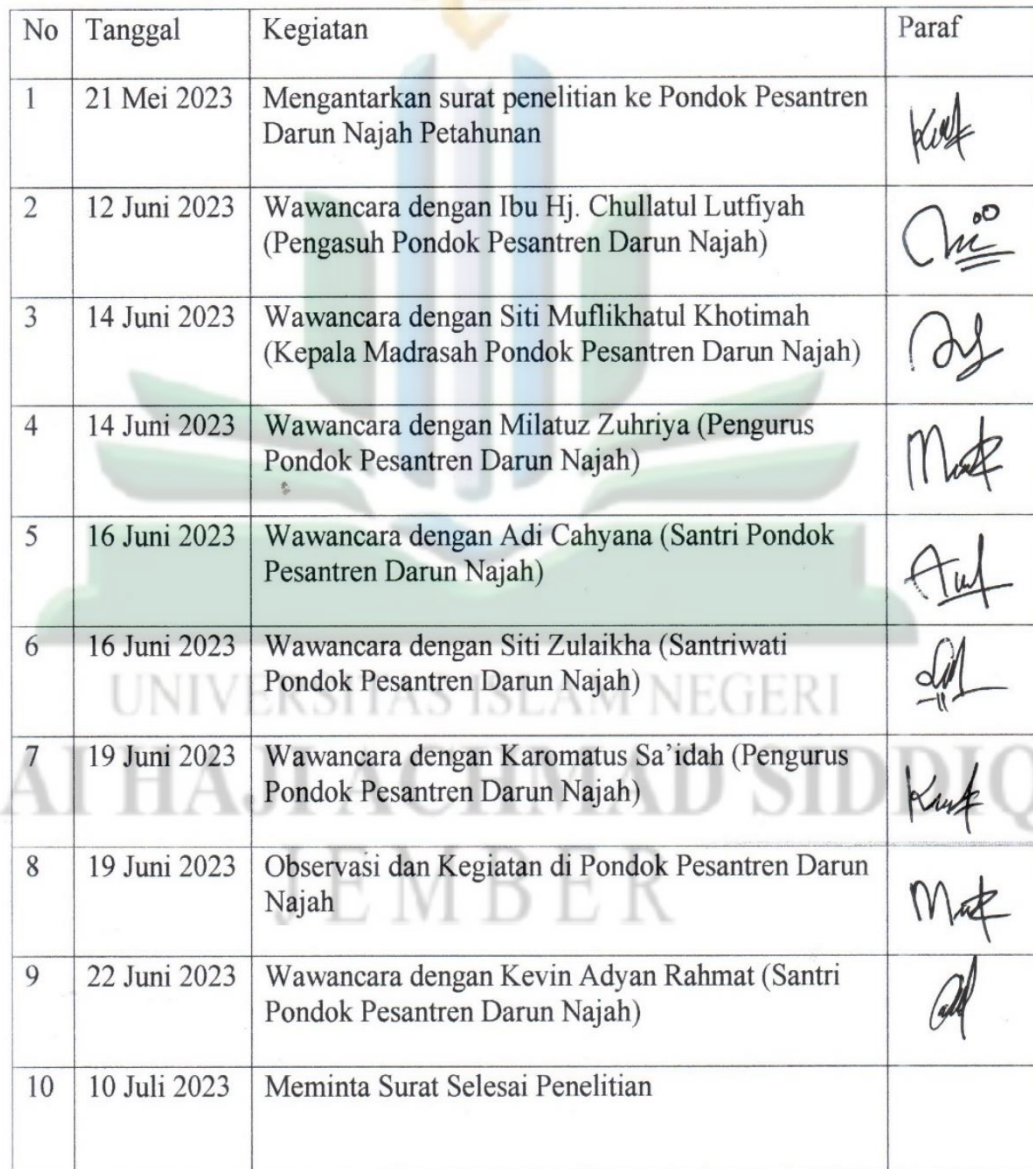 No Tanggal Kegiatan Paraf
1 21 Mei 2023 Mengantarkan surat penelitian ke Pondok Pesantren
Darun Najah Petahunan
2 12 Juni 2023 Wawancara dengan Ibu Hj. Chullatul Lutfiyah
(Pengasuh Pondok Pesantren Darun Najah)
3 14 Juni 2023 Wawancara dengan Siti Muflikhatul Khotimah
(Kepala Madrasah Pondok Pesantren Darun Najah)
4 14 Juni 2023 Wawancara dengan Milatuz Zuhriya (Pengurus
Pondok Pesantren Darun Najah)
5 16 Juni 2023 Wawancara dengan Adi Cahyana (Santri Pondok
Pesantren Darun Najah)
6 16 Juni 2023 Wawancara dengan Siti Zulaikha (Santriwati
Pondok Pesantren Darun Najah)
UNIVERSITAS ISLAM NEGERI
7 19 Juni 2023 Wawancara dengan Karomatus Sa'idah (Pengurus
Pondok Pesantren Darun Najah)
AI HAJI ACHMAD SIDDIQ
8 19 Juni 2023 Observasi dan Kegiatan di Pondok Pesantren Darun
Najah
JEMBER
9 22 Juni 2023 Wawancara dengan Kevin Adyan Rahmat (Santri
Pondok Pesantren Darun Najah)
10 10 Juli 2023 Meminta Surat Selesai Penelitian